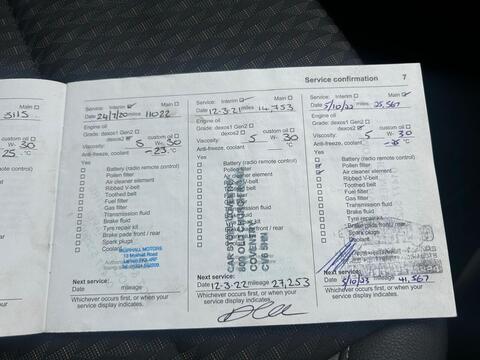 Service confirmation 7
5115
custom oil
W- 30
25 °C
Service: Interim Main
Date 24/7/20 miles 11022
Engine oil
Grade: dexos1 Gen2
dexos2 custom oil
Viscosity: 5 W- 30
Anti-freeze, coolant -23 °C
Yes
Battery (radio remote control)
Pollen filter
Air cleaner element
Ribbed V-belt
Toothed belt
Fuel filter
Gas filter
Transmission fluid
Brake fluid
Tyre repair kit
Brake pads front / rear
Spark plugs
Coolant
MOTORS
Next service:
Date mileage
Whichever occurs first, or when your
service display indicates.
Service: Interim Main
Date 12-3-21 miles 14,753
Engine oil
Grade: dexos1 Gen2
dexos2 custom oil
Viscosity: 5 W- 30
Anti-freeze, coolant °C
Yes
Battery (radio remote control)
Pollen filter
Air cleaner element
Ribbed V-belt
Toothed belt
Fuel filter
Gas filter
Transmission fluid
Brake fluid
Tyre repair kit
Brake pads front / rear
Spark plugs
Coolant
COVENTRY
Next service:
Date 12-3-22 mileage 27,253
Whichever occurs first, or when your
service display indicates.
Service: Interim Main
Date 5/10/22 miles 25,567
Engine oil
Grade: dexos1 Gen2
dexos2 custom oil
Viscosity: 5 W- 30
Anti-freeze, coolant °C
Yes
Battery (radio remote control)
Pollen filter
Air cleaner element
Ribbed V-belt
Toothed belt
Fuel filter
Gas filter
Transmission fluid
Brake fluid
Tyre repair kit
Brake pads front / rear
Spark plugs
Coolant
Next service:
Date 5/10/23 mileage 41,567
Whichever occurs first, or when your
service display indicates.